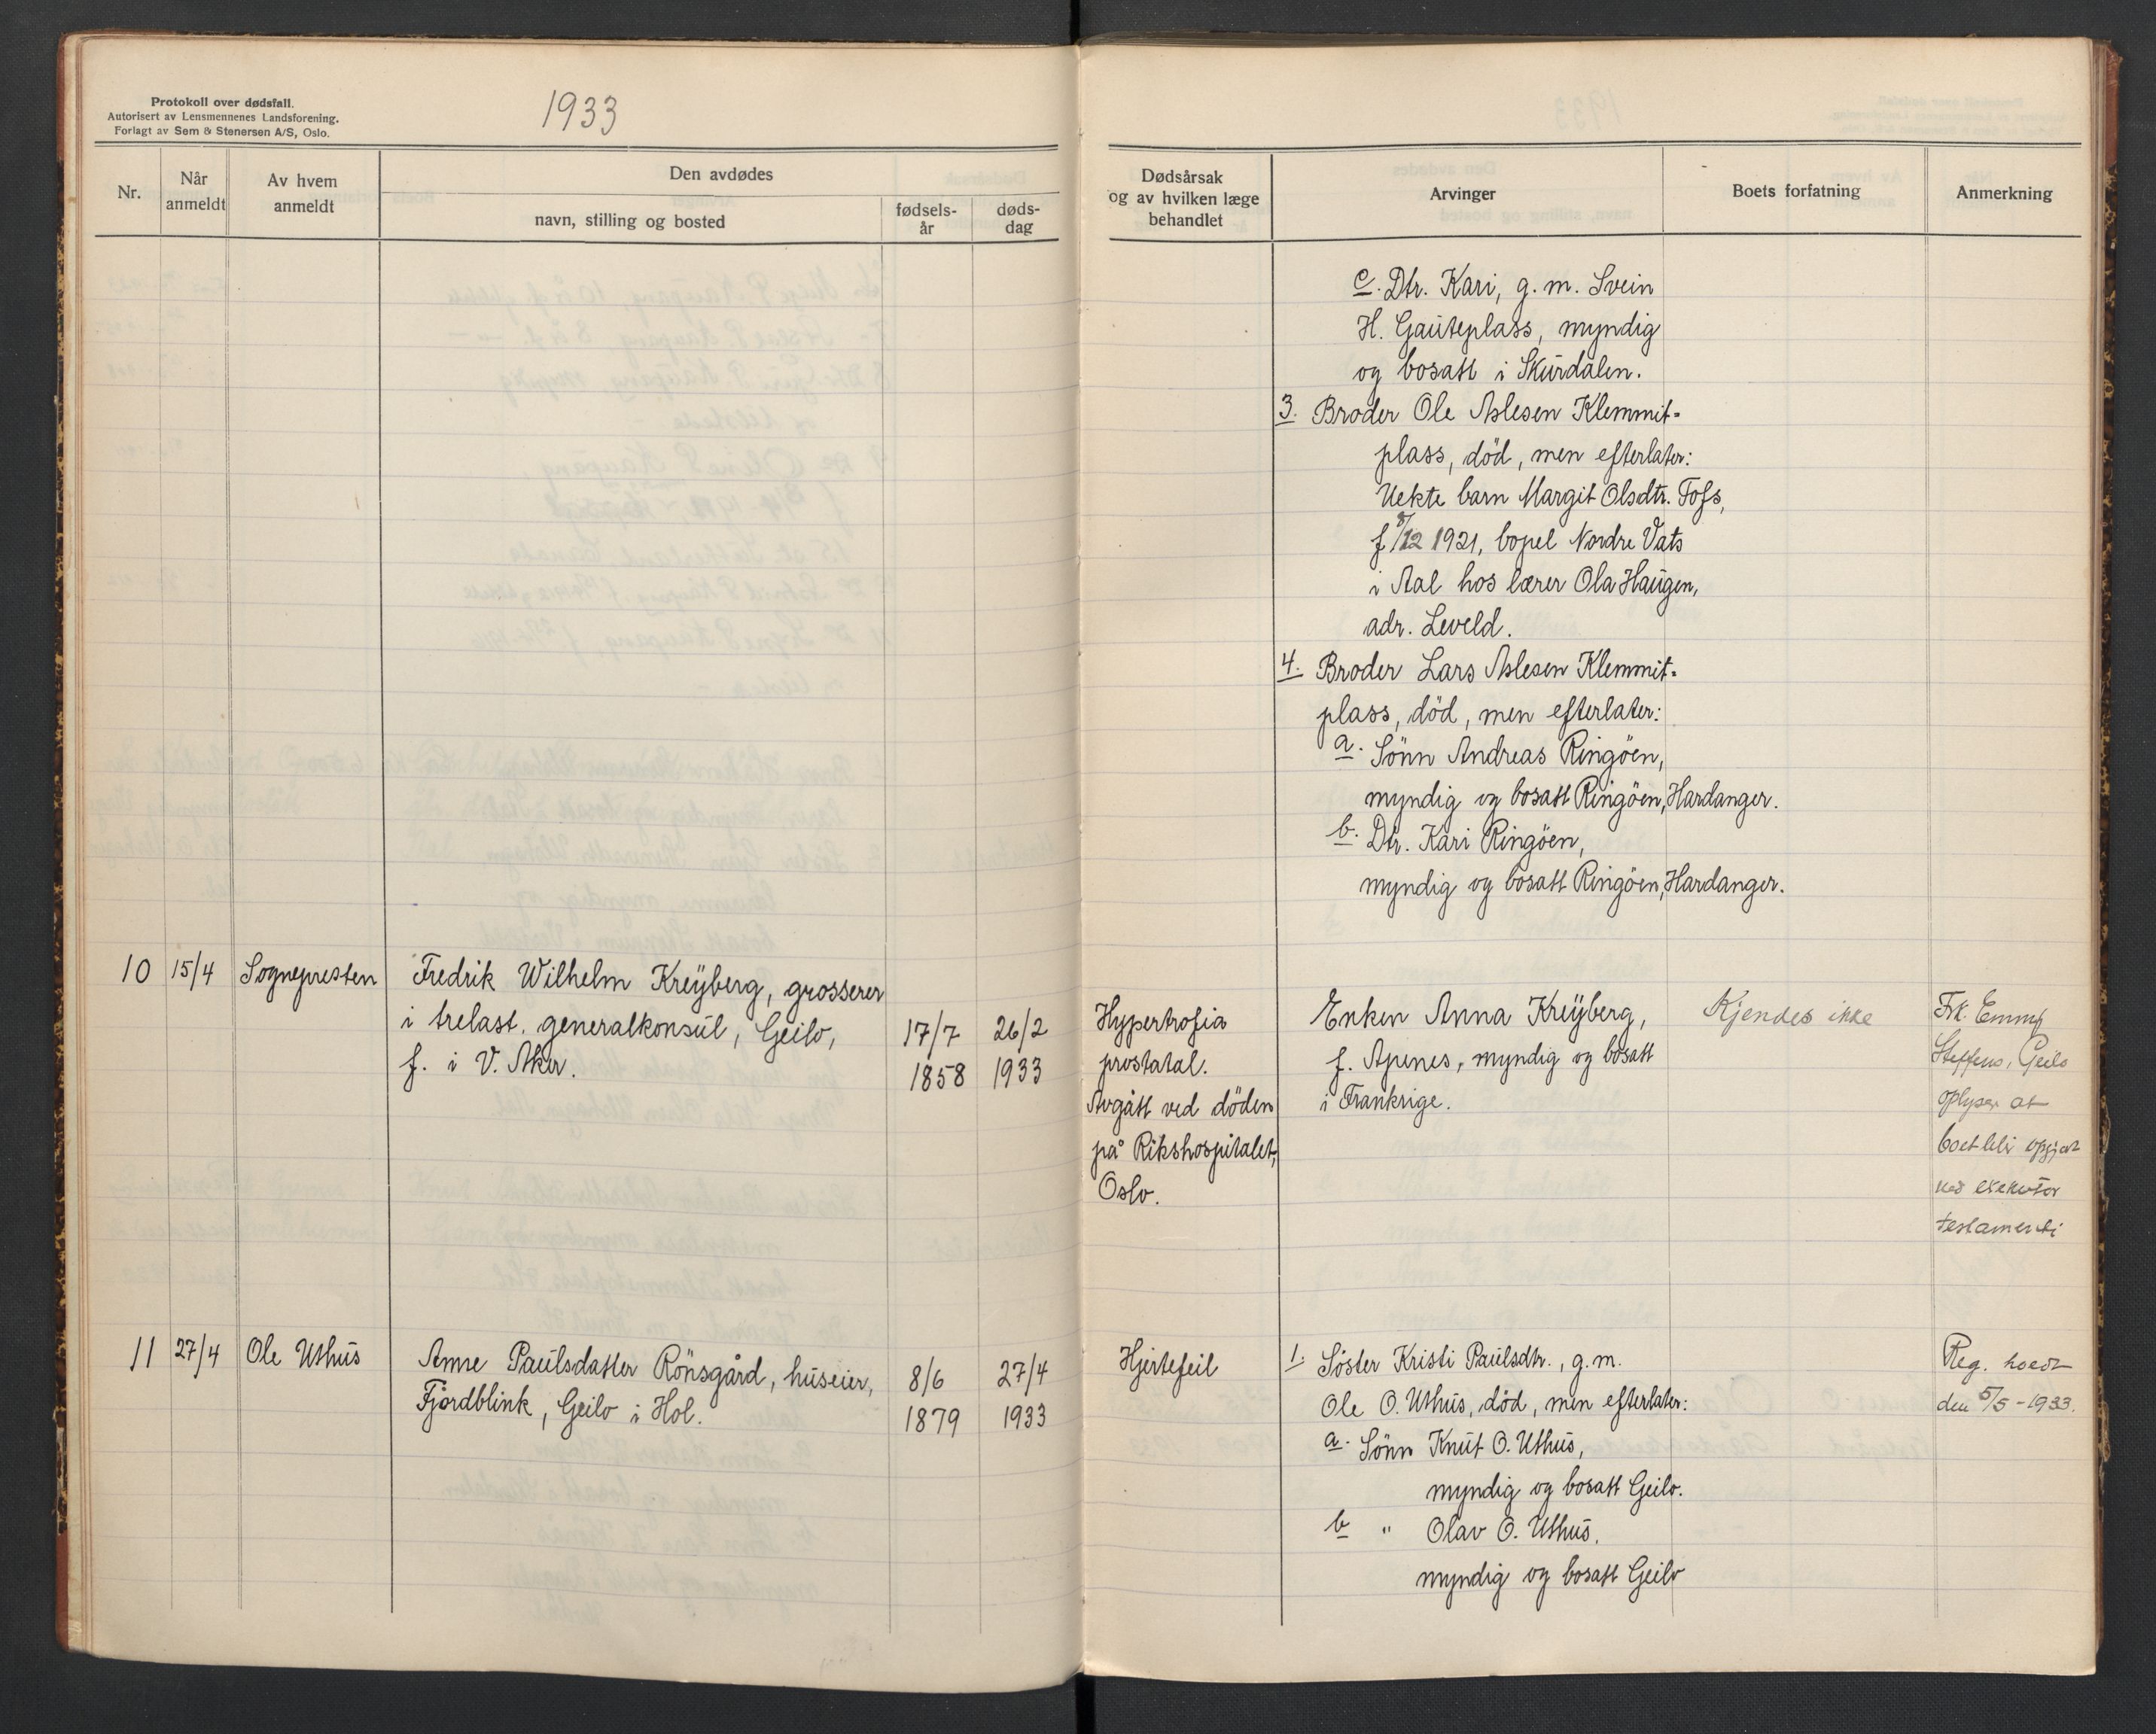 Protokoll over dødsfall.
Autorisert av Lensmennenes Landsforening.
Forlagt av Sem & Stenersen A/S, Oslo.
1933
Nr.
Når anmeldt
Av hvem anmeldt
Den avdødes
navn, stilling og bosted
fødsels-år
døds-dag
Dødsårsak
og av hvilken læge
behandlet
Arvinger
Boets forfatning
Anmerkning
c. Dtr. Kari, g. m. Svein
H. Gauteplass, myndig
og bosatt i Skurdalen.
3. Broder Ole Aslesen Klemmit-
plass, död, men efterlater:
Uekte barn Margit Olsdtr. Tofs,
f 8/12 1921, bopel Nordre Vats
i Aal hos lærer Ola Haugen,
adr. Leveld.
4. Broder Lars Aslesen Klemmit-
plass, död, men efterlater:
a. Sönn Andreas Ringöen,
myndig og bosatt Ringöen, Hardanger.
b. Dtr. Kari Ringöen,
myndig og bosatt Ringöen, Hardanger.
10 15/4 Sognepresten
Fredrik Wilhelm Kreyberg, grosserer
i trelast. generalkonsul, Geilo,
f. i V. Aker.
17/7
1858
26/2
1933
Hypertrofia
prostatal.
Avgått ved döden
på Rikshospitalet,
Oslo.
Enken Anna Kreyberg,
f. Apenes, myndig og bosatt
i Frankrige.
Kjendes ikke
Frk. Emmy
Steffens, Geilo
oplyser at
boet blir opgjort
ved eksekutor
testamenti
11 27/4 Ole Uthus
Anne Paulsdatter Rönsgård, huseier,
Fjordblink, Geilo i Hol.
8/6
1879
27/4
1933
Hjertefeil
1. Söster Kristi Paulsdtr., g.m.
Ole O. Uthus, död, men efterlater:
a. Sönn Knut O. Uthus,
myndig og bosatt Geilo.
b " Olav O. Uthus.
myndig og bosatt Geilo
Reg. holdt
den 5/5 - 1933.